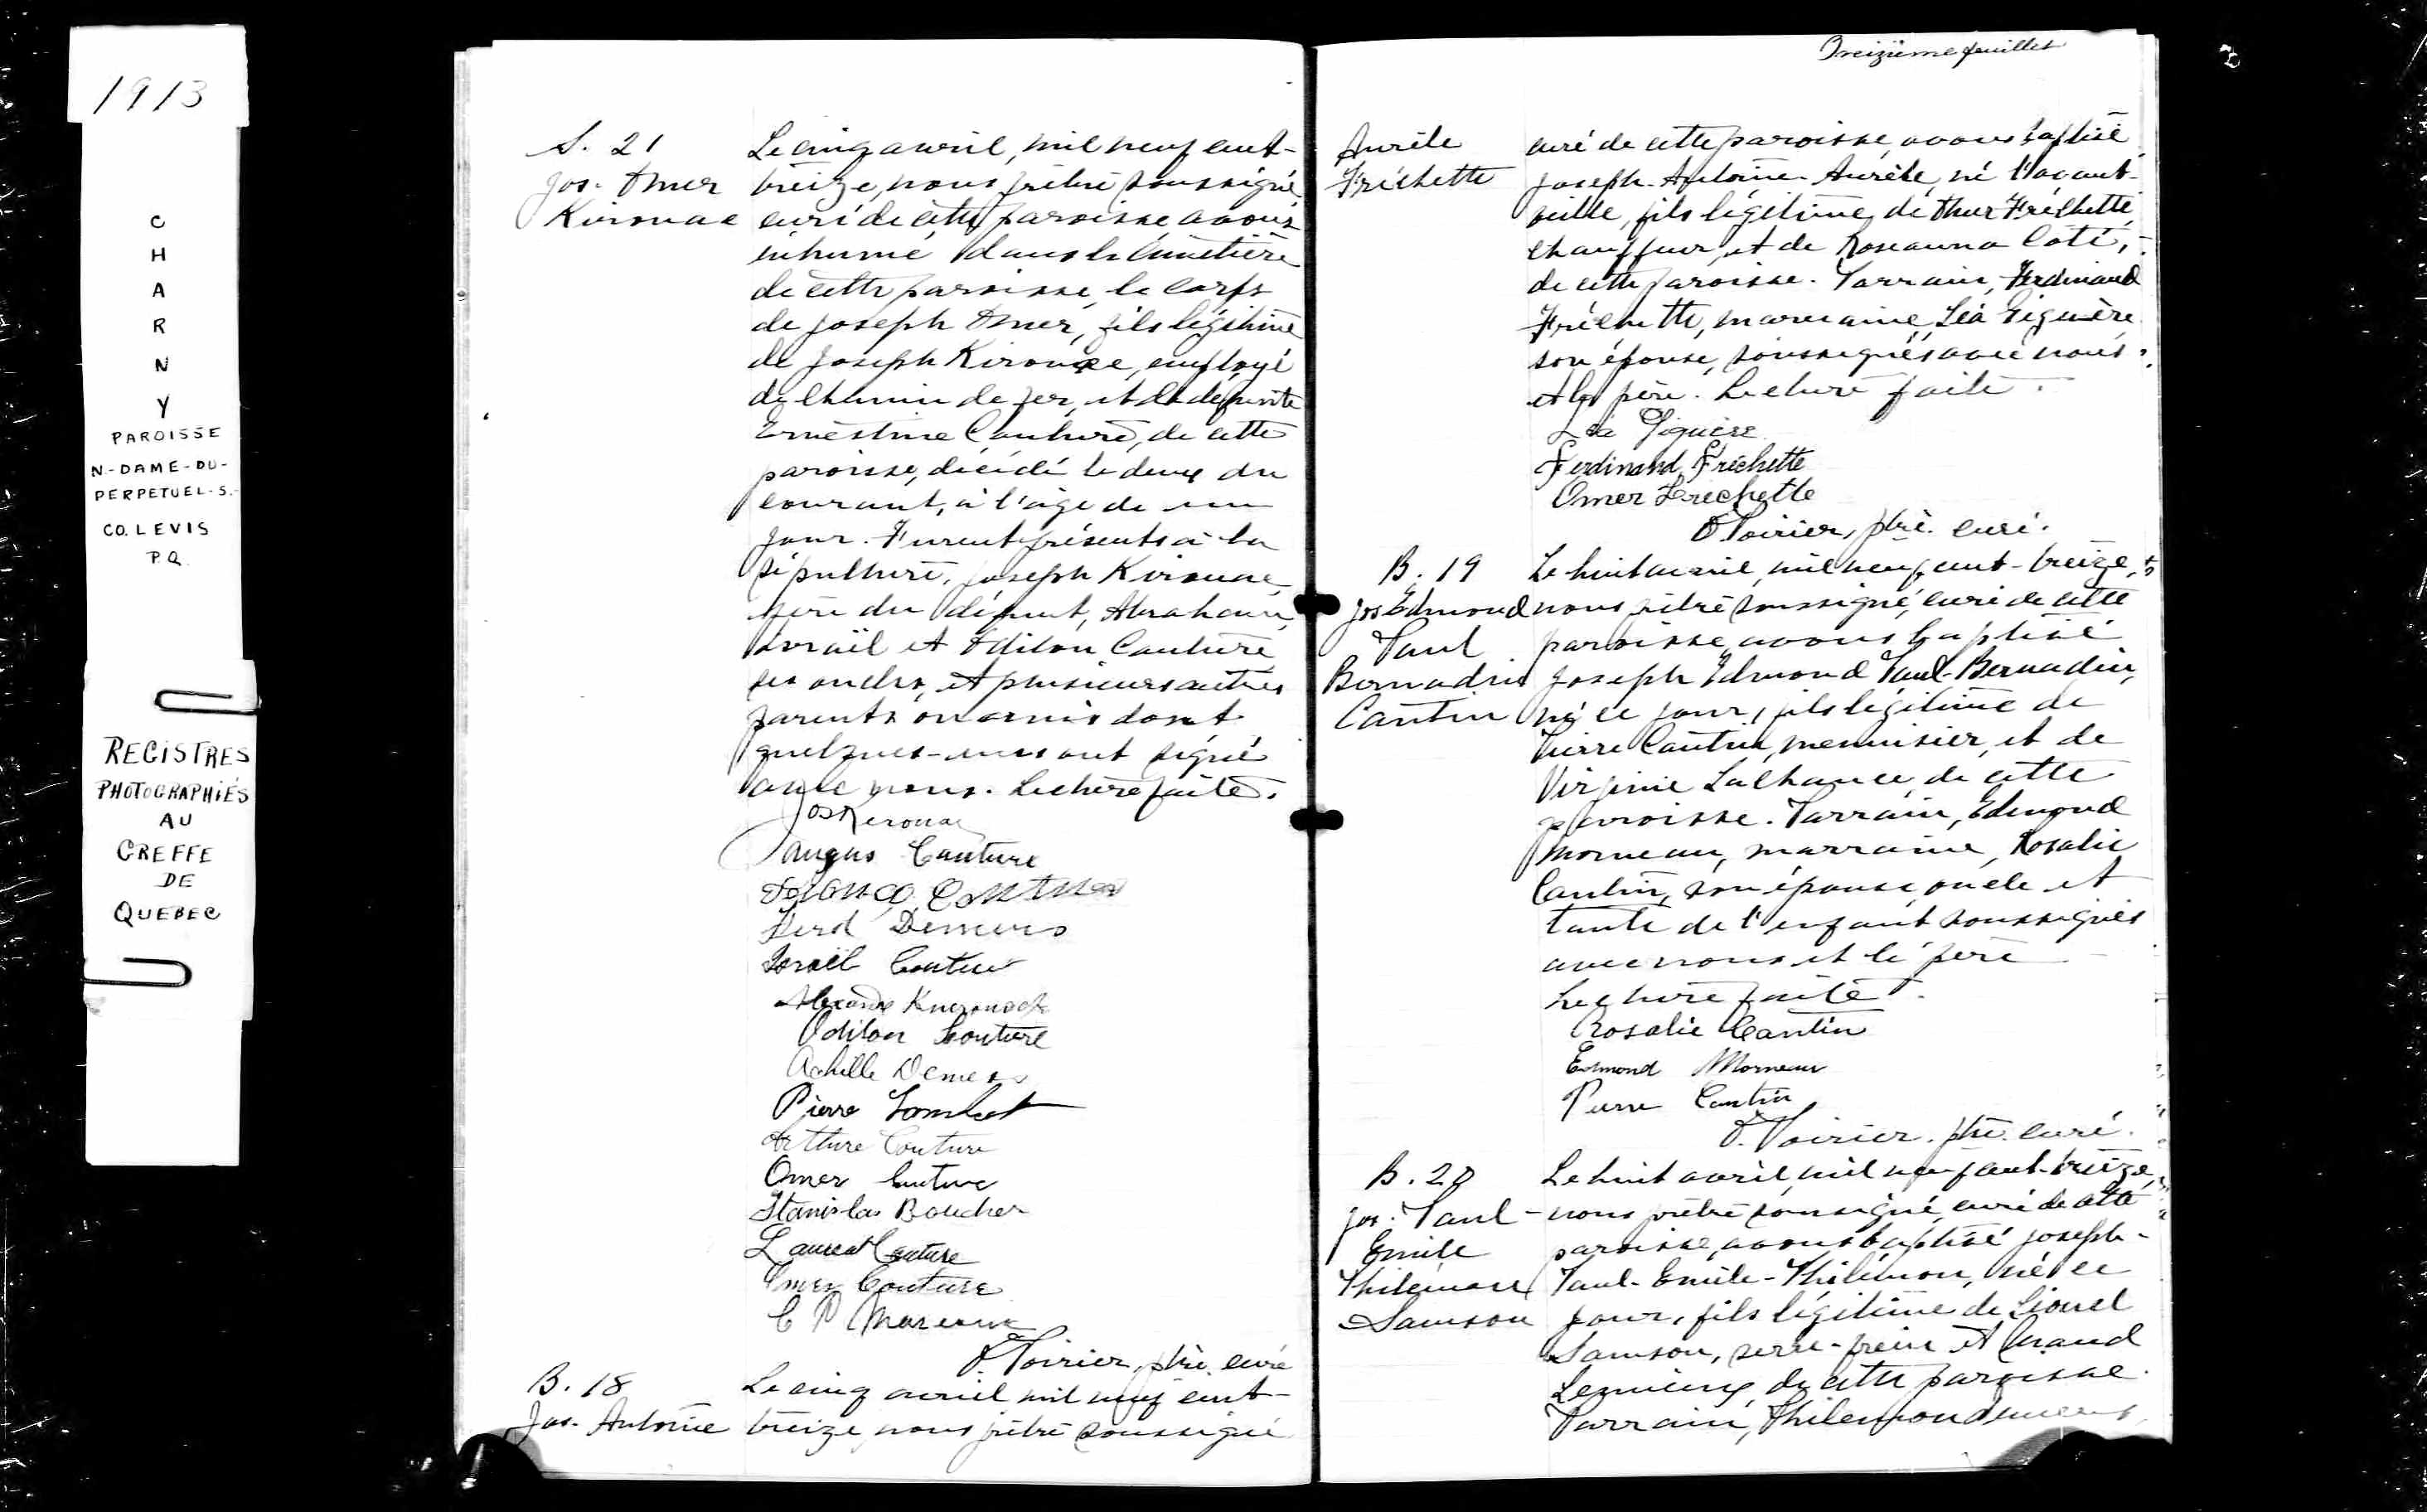 1913
C
H
A
R
N
Y
PAROISSE
N-DAME-DU-
PERPETUEL-S.-
CO. LEVIS
P.Q.
REGISTRES
PHOTOGRAPHIÉS
AU
GREFFE
DE
QUEBEC
S. 21
Jos. Omer
Kirouac
Le cinq avril, mil neuf cent-
treize, nous prêtre soussigné
curé de cette paroisse avons
inhumé dans le cimetière
de cette paroisse, le corps
de Joseph Omer, fils légitime
de Joseph Kirouac, employé
de chemin de fer, et de defunte
Ernestine Couture, de cette
paroisse, décédé le deux du
courant, à l'âge de un
jour. Furent présents à la
sépulture, Joseph Kirouac
père du défunt, Abraham,
Israël et Odilon Couture
ses oncles, et plusieurs autres
parents ou amis dont
quelques-uns ont signé
avec nous. Lecture faite.
Jos Kerouac
Couture
Ferd Demers
Israël Couture
Odilon Couture
Achille Demers
Pierre Lambert
Arthure Couture
Omer Couture
Stanislas Boucher
Laureat Couture
Omer Couture
C P
O Poirier, ptre. curé
B. 18
Jos. Antoine
Le cinq avril mil neuf cent-
treize, nous prêtre soussigné
Treizième feuillet
Aurèle
Fréchette
curé de cette paroisse, avons baptisé
Joseph-Antoine-Aurèle, né l'avant-
veille, fils légitime de Omer Fréchette,
chauffeur, et de Roseanna Côté,
de cette paroisse. Parrain, Ferdinand
Fréchette, marraine, Léa Giguère
son épouse, soussignés avec nous
et le père. Lecture faite.
Léa Giguère
Ferdinand Fréchette
Omer Frechette
O Poirier, ptre. curé.
B. 19
Jos Edmond
Paul
Bernadin
Cantin
Le huit avril, mil neuf cent-treize,
nous prêtre soussigné, curé de cette
paroisse avons baptisé
Joseph Edmond Paul-Bernadin,
né ce jour, fils légitime de
Pierre Cantin, menuisier, et de
Virginie Lachance, de cette
paroisse. Parrain, Edmond
Morneau, marraine, Rosalie
Cantin, son épouse, oncle et
tante de l'enfant soussignés
avec nous et le père
Lecture faite.
Rosalie Cantin
Edmond Morneau
Pierre Cantin
O. Poirier. ptre. curé.
B. 20
Jos. Paul-
Emile
Philémon
Samson
Le huit avril, mil neuf cent-treize,
nous prêtre soussigné, curé de cette
paroisse, avons baptisé Joseph-
Paul-Emile-Philémon, né ce
jour, fils légitime de Lionel
Samson, serre-frein et Maud
Lemieux, de cette paroisse.
Parrain, Philemon